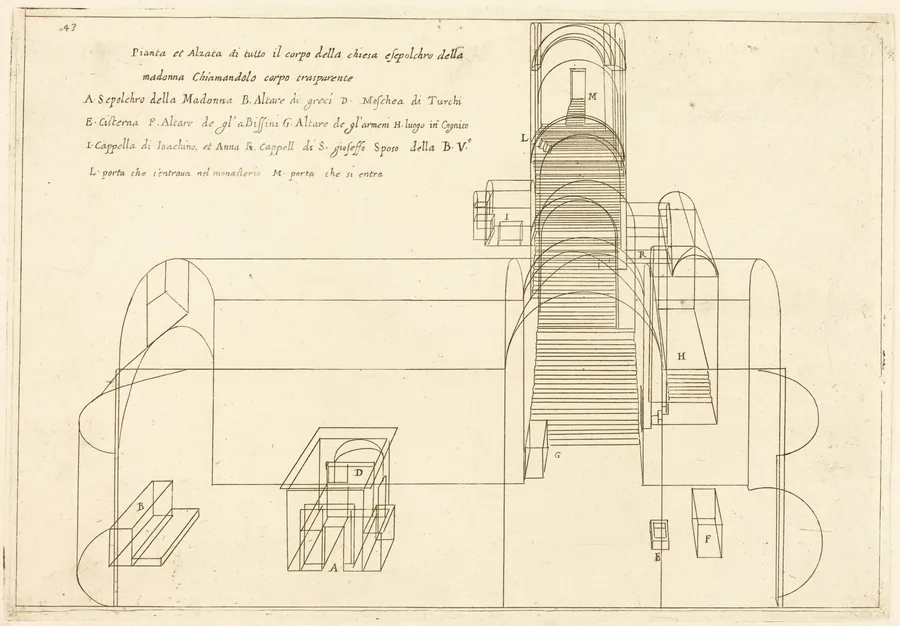 43
Pianta et Alzata di tutto il corpo della chiesa eſepolchro della
madonna Chiamandolo corpo trasparente
A Sepolchro della Madonna B. Altare di greci D· Moſchea di Turchi
E· Ciſterna F. Altare de gl'aBiſſini G· Altare de gl'armeni H· luogo in Cognito
I· Cappella di Ioachino, et Anna R. Cappell di S· gioſeffo Sposo della B· V.
L· porta che s'entraua nel monaſterio M· porta che si entra
M
L
I
R
H
G
D
B
A
E
F